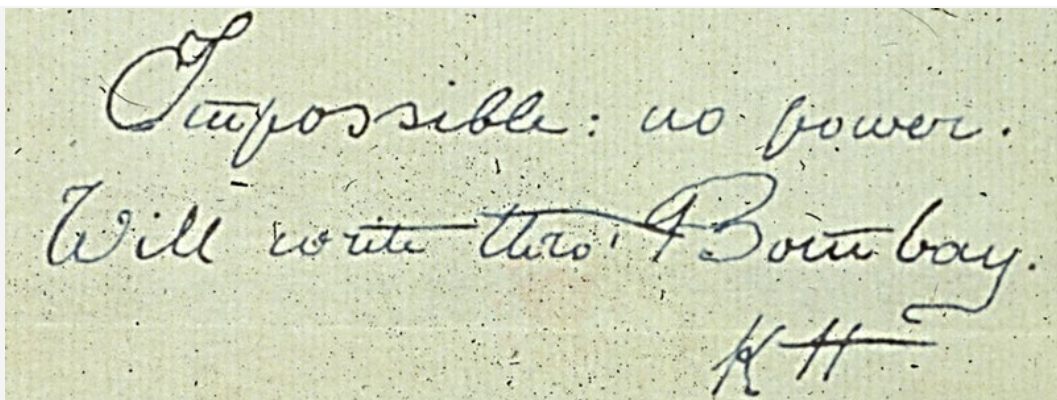 Impossible: no power.
Will write thro' Bombay.
KH